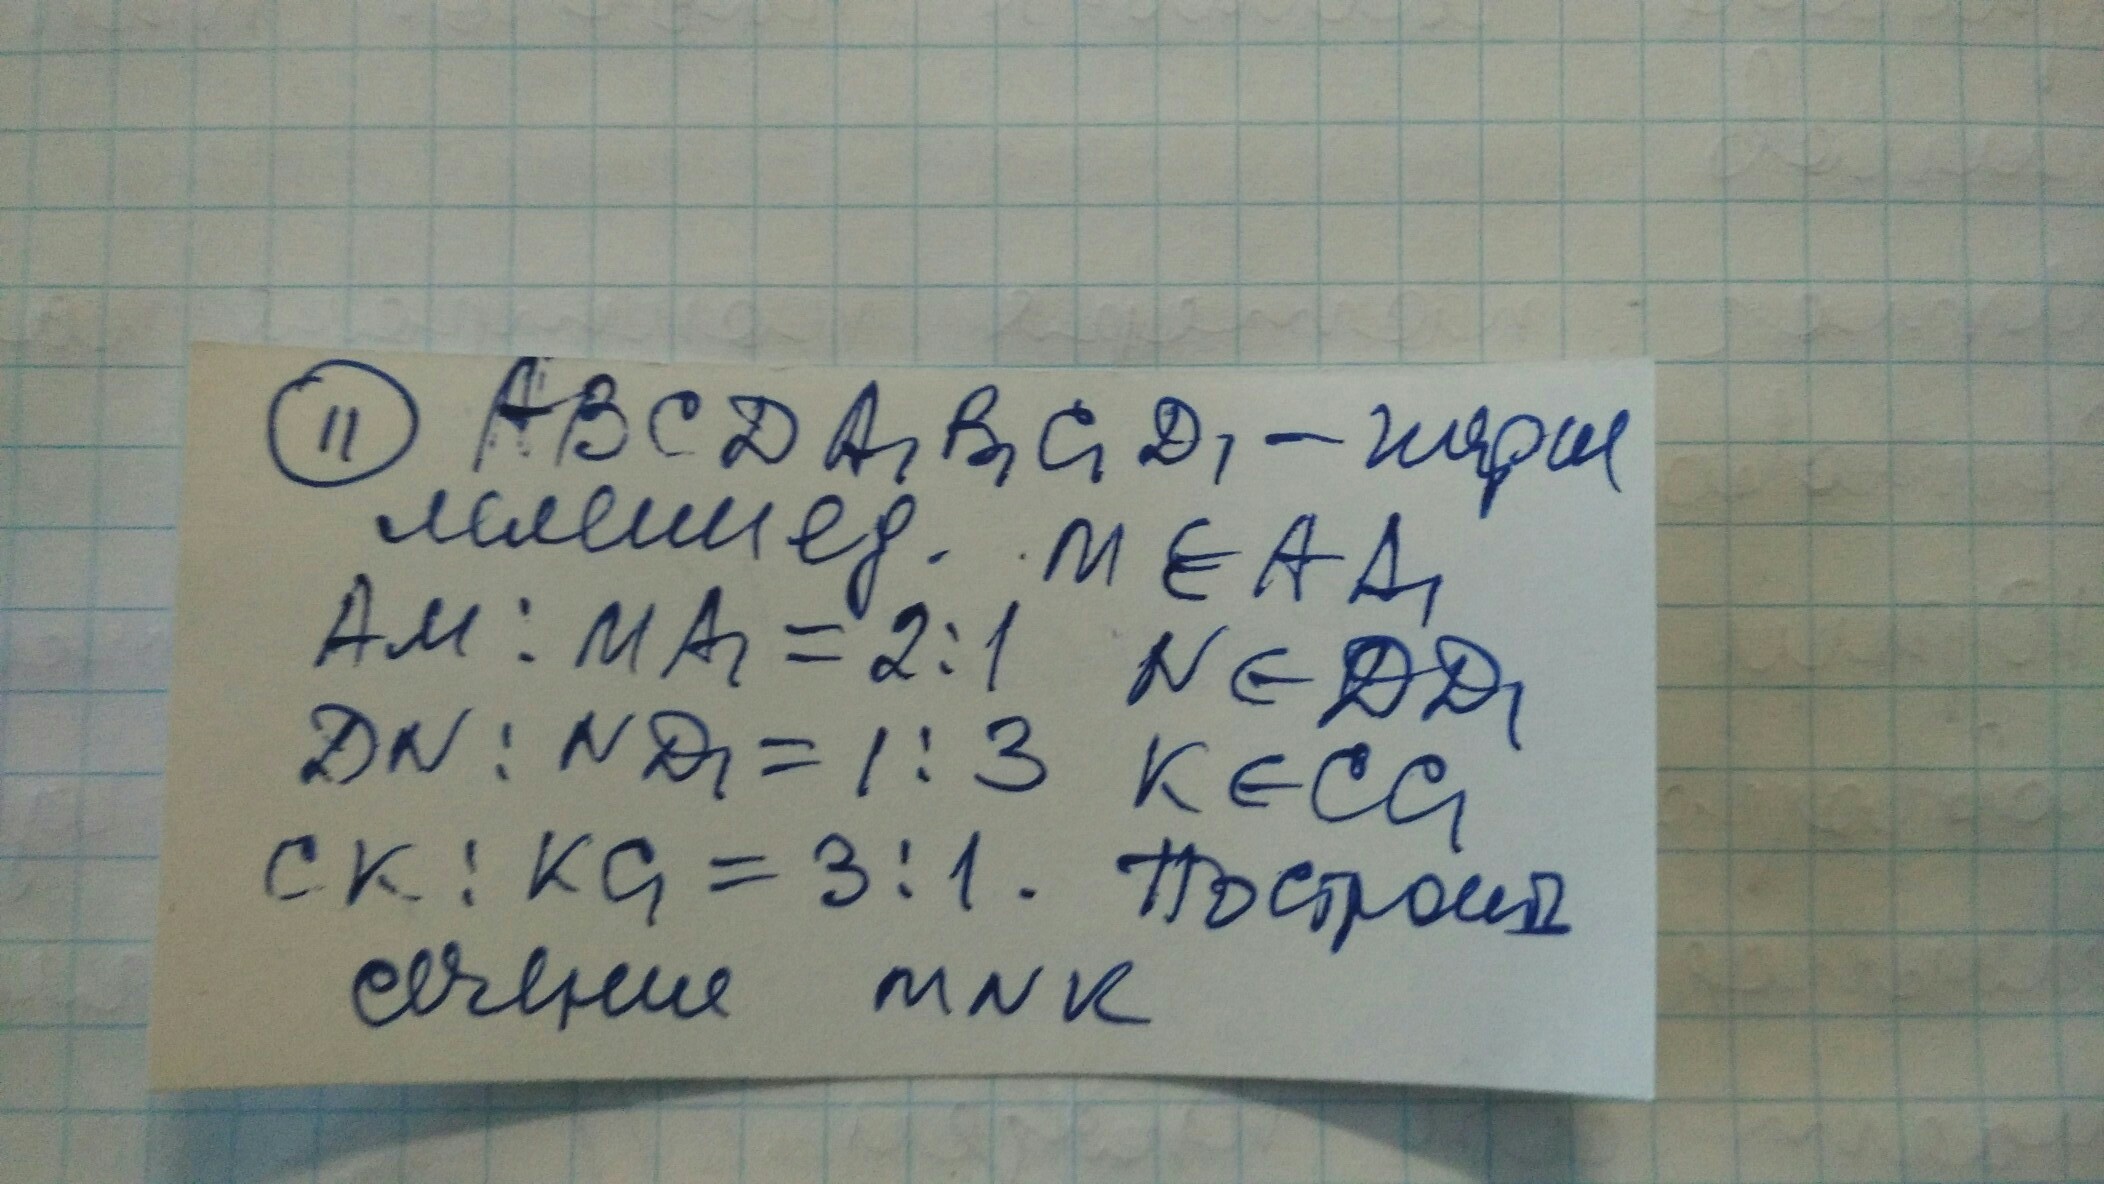 11 ABCDA₁B₁C₁D₁ – парал
лелепипед. M ∈ AA₁
AM : MA₁ = 2:1 N ∈ DD₁
DN : ND₁ = 1:3 K ∈ CC₁
CK : KC₁ = 3:1. Построить
сечение MNK